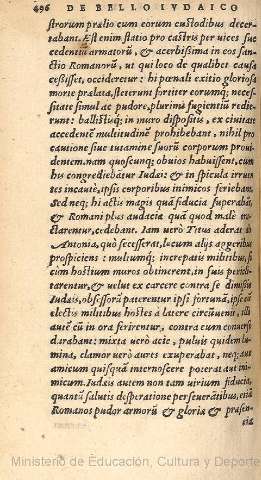 496 DE BELLO IVDAICO
strorum prælio cum eorum custodibus decer-
tabant. Æst enim statio pro castris per vices suc
cedentiū armatorū, & acerbissima in eos san-
ctio Romanorū, ut qui loco de qualibet causa
cessisset, occideretur: hi pœnali exitio gloriosa
morte prælata, steterunt fortiter eorumq́; neces-
sitate simul ac pudore, plurimi fugientiū redie-
runt: ballistisq́; in muro dispositis, ex ciuitate
accedentē multitudinē prohibebant, nihil pro
cautione siue tutamine suorū corporum proui-
dentem, nam quoscunq; obuios habuissent, cum
his congrediebātur Iudæi: & in spicula irruen
tes incautè, ipsis corporibus inimicos feriebant.
Sed neq; hi actis magis quā fiducia superabāt,
& Romani plus audacia quā quod malè mu
ctarentur, cedebant. Iam verò Titus aderat in
Antonia, quò secesserat, locum alijs aggeribus
prospiciens: multumq́; increpatis militibus, si
cum hostium muros obtinerent, in suis pericli-
tarentur, & velut ex carcere contra se dimissis
Iudæis, obsessorū paterentur ipsi fortunā, ipse cū
electis militibus hostes à latere circūuenit, illi
autē cū in ora ferirentur, contra eum conuersi
darabant: mixta verò acie, puluis quidem lu-
mina, clamor verò aures exuperabat, neq; aut
amicum quisquā internoscere poterat aut ini-
micum. Iudæis autem non tam virium fiducia,
quantū salutis desperatione perseuerātibus, etiā
Romanos pudor armorū & gloriæ & præsen-
tia
Ministerio de Educación, Cultura y Deporte